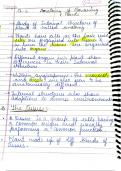 Anatomy of Flowering
Study of internal structure of
plant is called anatomy.
Plants have cells as the basic unit
cells are organised into tissues &
in turn the tissues are organised
into organs.
Different organs in a plant show
differences in their internal
structure
Within angiosperms the monocot
and dicot are also seen to be
anatomically different
Internal structures also show
adaptations to diverse environments
The Tissues
A tissue is a group of cells having
a common origin and usually
performing a common function
Plant made up of diff. kinds of
tissues.